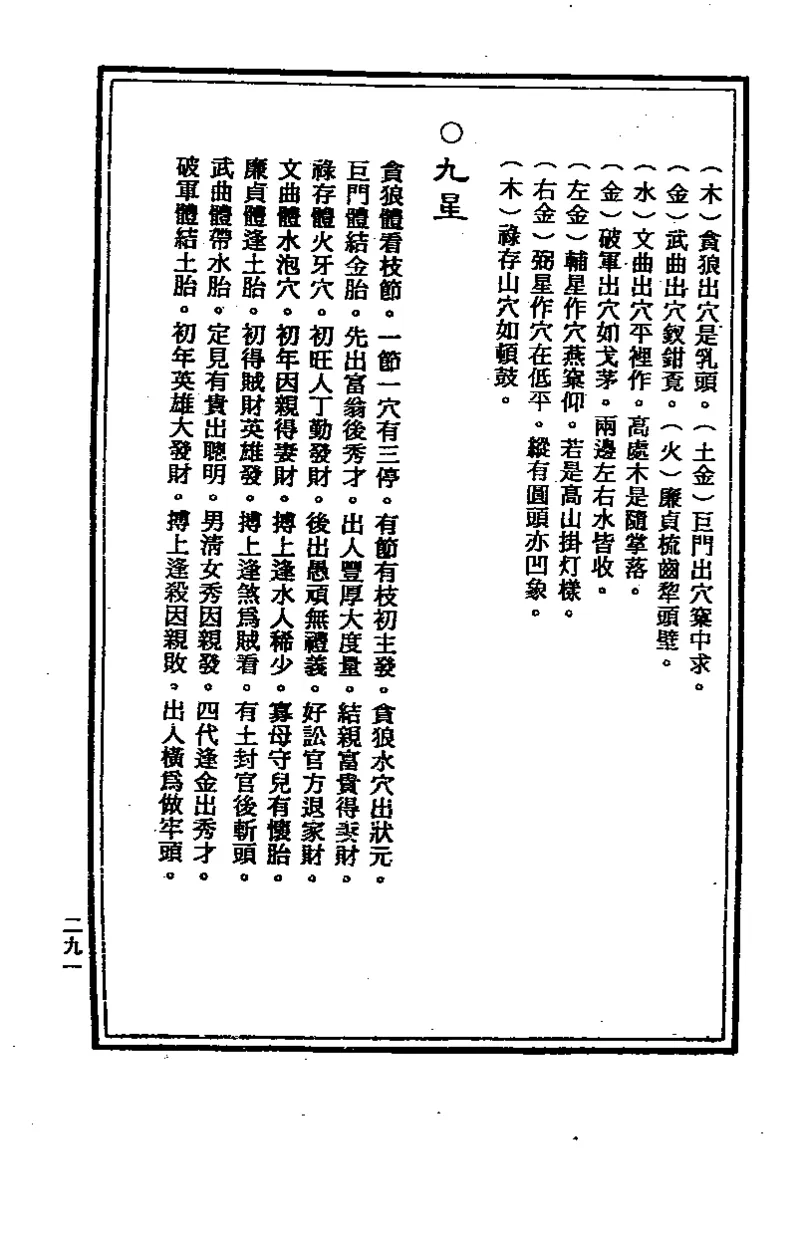 （木）貪狼出穴是乳頭。（土金）巨門出穴窠中求。
（金）武曲出穴釵鉗覓。（火）廉貞梳齒犂頭壁。
（水）文曲出穴平裡作。高處木是隨掌落。
（金）破軍出穴如戈茅。兩邊左右水皆收。
（左金）輔星作穴燕窠仰。若是高山掛灯樣。
（右金）弼星作穴在低平。縱有圓頭亦凹象。
（木）祿存山穴如頓鼓。
○九星
貪狼體看枝節。一節一穴有三停。有節有枝初主發。貪狼水穴出狀元。
巨門體結金胎。先出富翁後秀才。出人豐厚大度量。結親富貴得妻財。
祿存體火牙穴。初旺人丁勤發財。後出愚頑無禮義。好訟官方退家財。
文曲體水泡穴。初年因親得妻財。搏上逢水人稀少。寡母守兒有懷胎。
廉貞體逢土胎。初得賊財英雄發。搏上逢煞爲賊看。有土封官後斬頭。
武曲體帶水胎。定見有貴出聰明。男清女秀因親發。四代逢金出秀才。
破軍體結土胎。初年英雄大發財。搏上逢殺因親敗。出人橫爲做牢頭。
二九一